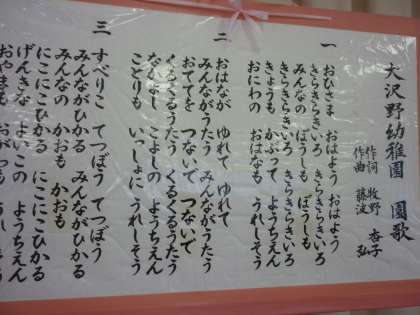 大沢野幼稚園 園歌
作詞 牧野 杏子
作曲 藤波 弘
一
おひさま おはよう おはよう
きらきらきいろ きらきらきいろ
みんなの ぼうしも ぼうしも
きらきらきいろ きらきらきいろ
きょうも かぶって ようちえん
おにわの おはなも うれしそう
二
おはなが ゆれて ゆれて
みんながうたう みんながうたう
おててを つないで つないで
くるくるうたう くるくるうたう
なかよし こよしの ようちえん
ことりも いっしょに うれしそう
三
すべりこ てつぼう てつぼう
みんながひかる みんながひかる
みんなの かおも かおも
にこにこひかる にこにこひかる
げんきな よいこの ようちえん
おやまも